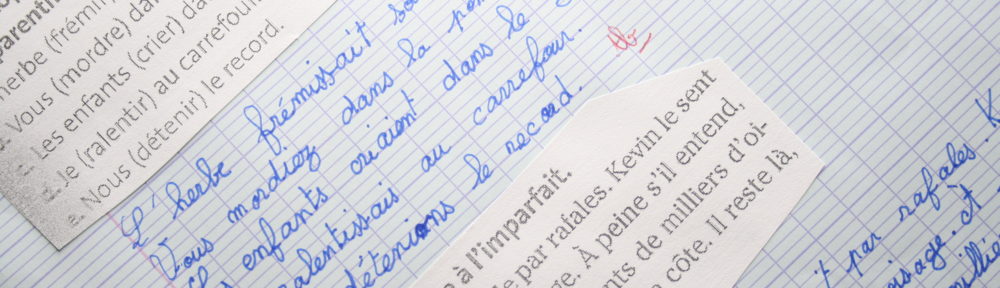 parenti
herbe (frémi
Vous (mordre) da
Les enfants (crier) da
Je (ralentir) au carrefou
e. Nous (détenir) le record.
L'herbe frémissait so
Vous mordiez dans la po
enfants criaient dans le
ralentissais au carrefour.
détenions le record.
tb
à l'imparfait.
e par rafales. Kevin le sent
ge. À peine s'il entend,
nts de milliers d'oi-
côte. Il reste là,
t par rafales. K
isage. At
milli